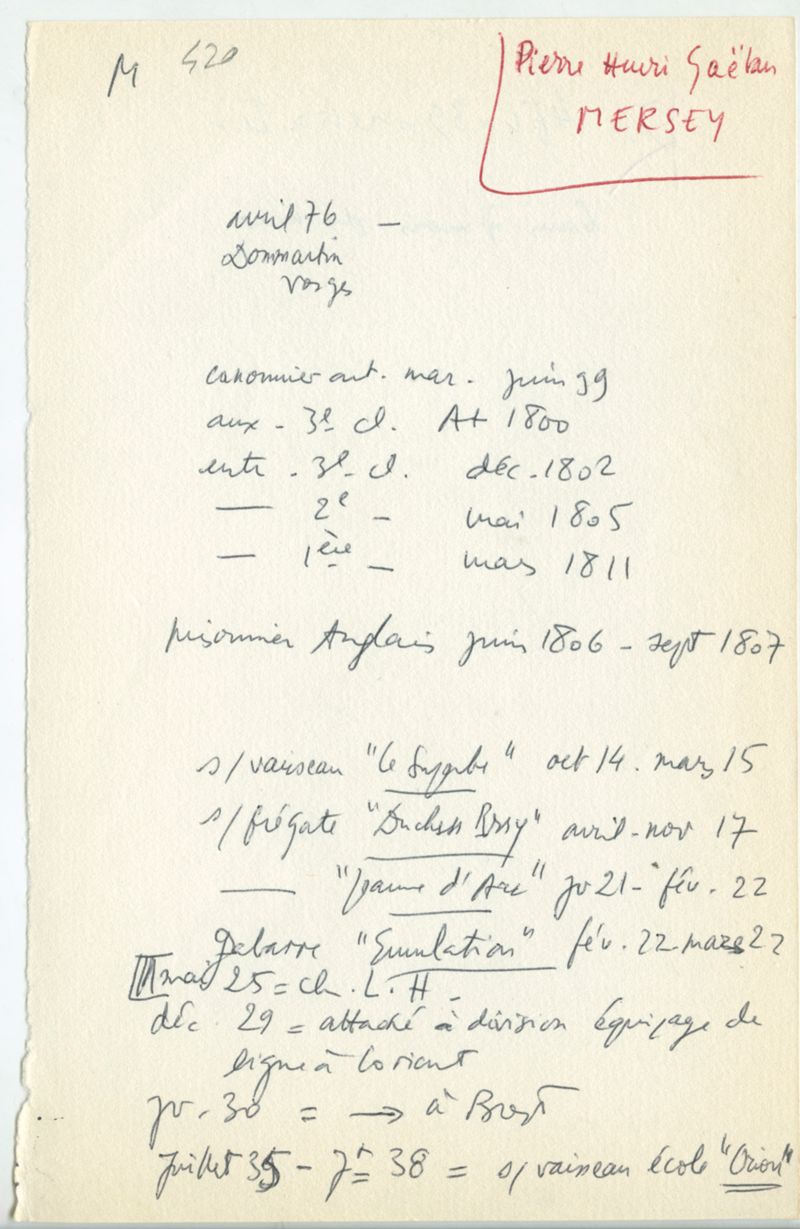 M 420
Pierre Henri Gaëtan
MERSEY
avril 76 —
Dommartin
Vosges
canonnier art. mar. juin 99
aux. 3e cl. At 1800
entr. 3e cl. déc. 1802
— 2e – mai 1805
— 1ère – mars 1811
prisonnier Anglais juin 1806 – sept 1807
s/vaisseau "le Superbe" oct 14. mars 15
s/frégate "Duchess Berry" avril-nov 17
— "Jeanne d'Arc" jv 21 – fév. 22
Gabarre "Emulation" fév. 22. mars 22
mai 25 = ch. L. H –
déc. 29 = attaché à division équipage de
ligne à Lorient
jv. 30 = → à Brest
juillet 35 – 7t 38 = s/vaisseau école "Orion"